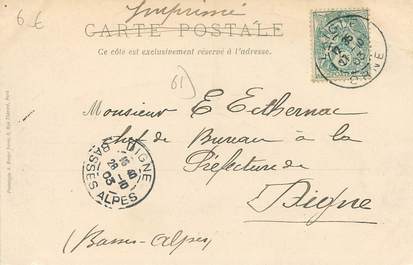 6 €
Imprimé
CARTE POSTALE
Ce côté est exclusivement réservé à l'adresse.
61
Monsieur E Ecthernac
chef de Bureau à la
Préfecture de
Digne
(Basses-Alpes)
DIGNE
BASSES ALPES
ORNE